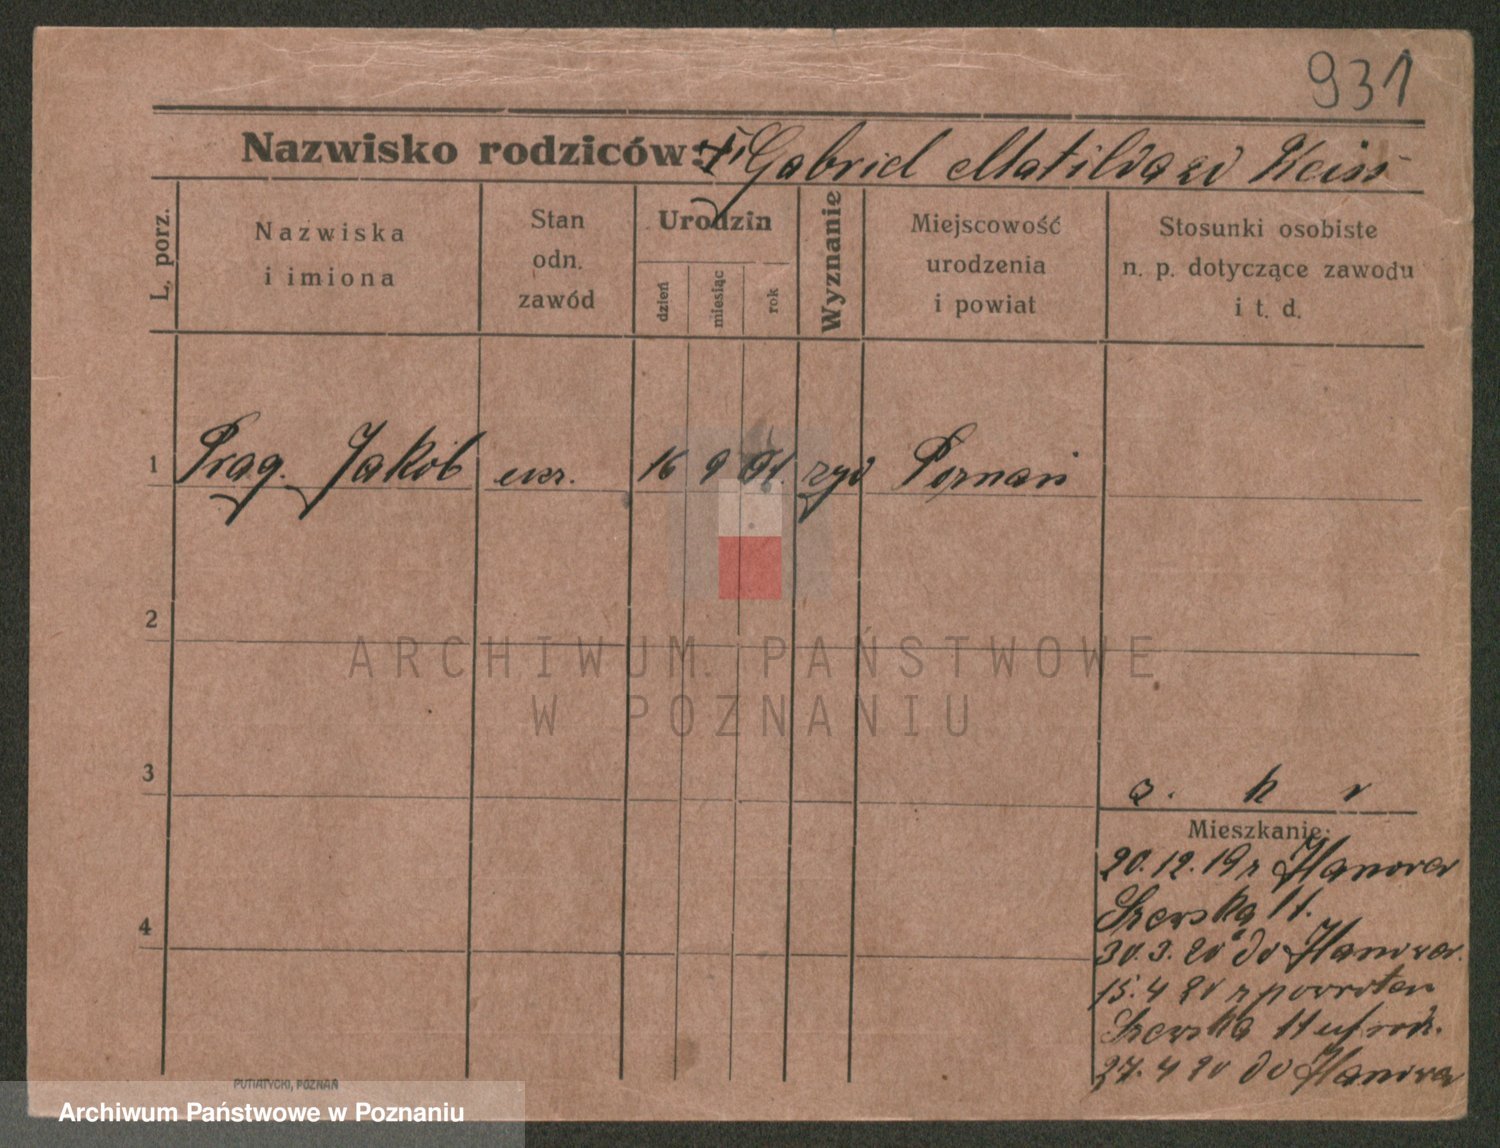 931
Nazwisko rodziców: Gabriel Matilda zd Weiss
L. porz.
Nazwiska
i imiona
Stan
odn.
zawód
Urodzin
dzień
miesiąc
rok
Wyznanie
Miejscowość
urodzenia
i powiat
Stosunki osobiste
n. p. dotyczące zawodu
i t. d.
1 Prag. Jakób ucz. 16 9 01. żyd Poznań
2
ARCHIWUM PAŃSTWOWE
W POZNANIU
3
a. k v
Mieszkanie:
20.12.19 z Hanower
Szewska 11.
4
30.3.20 do Hanower.
15.4 20 z powrotem
Szewska 11 u rodz.
27.4 20 do Hanower
PUTIATYCKI, POZNAŃ
Archiwum Państwowe w Poznaniu